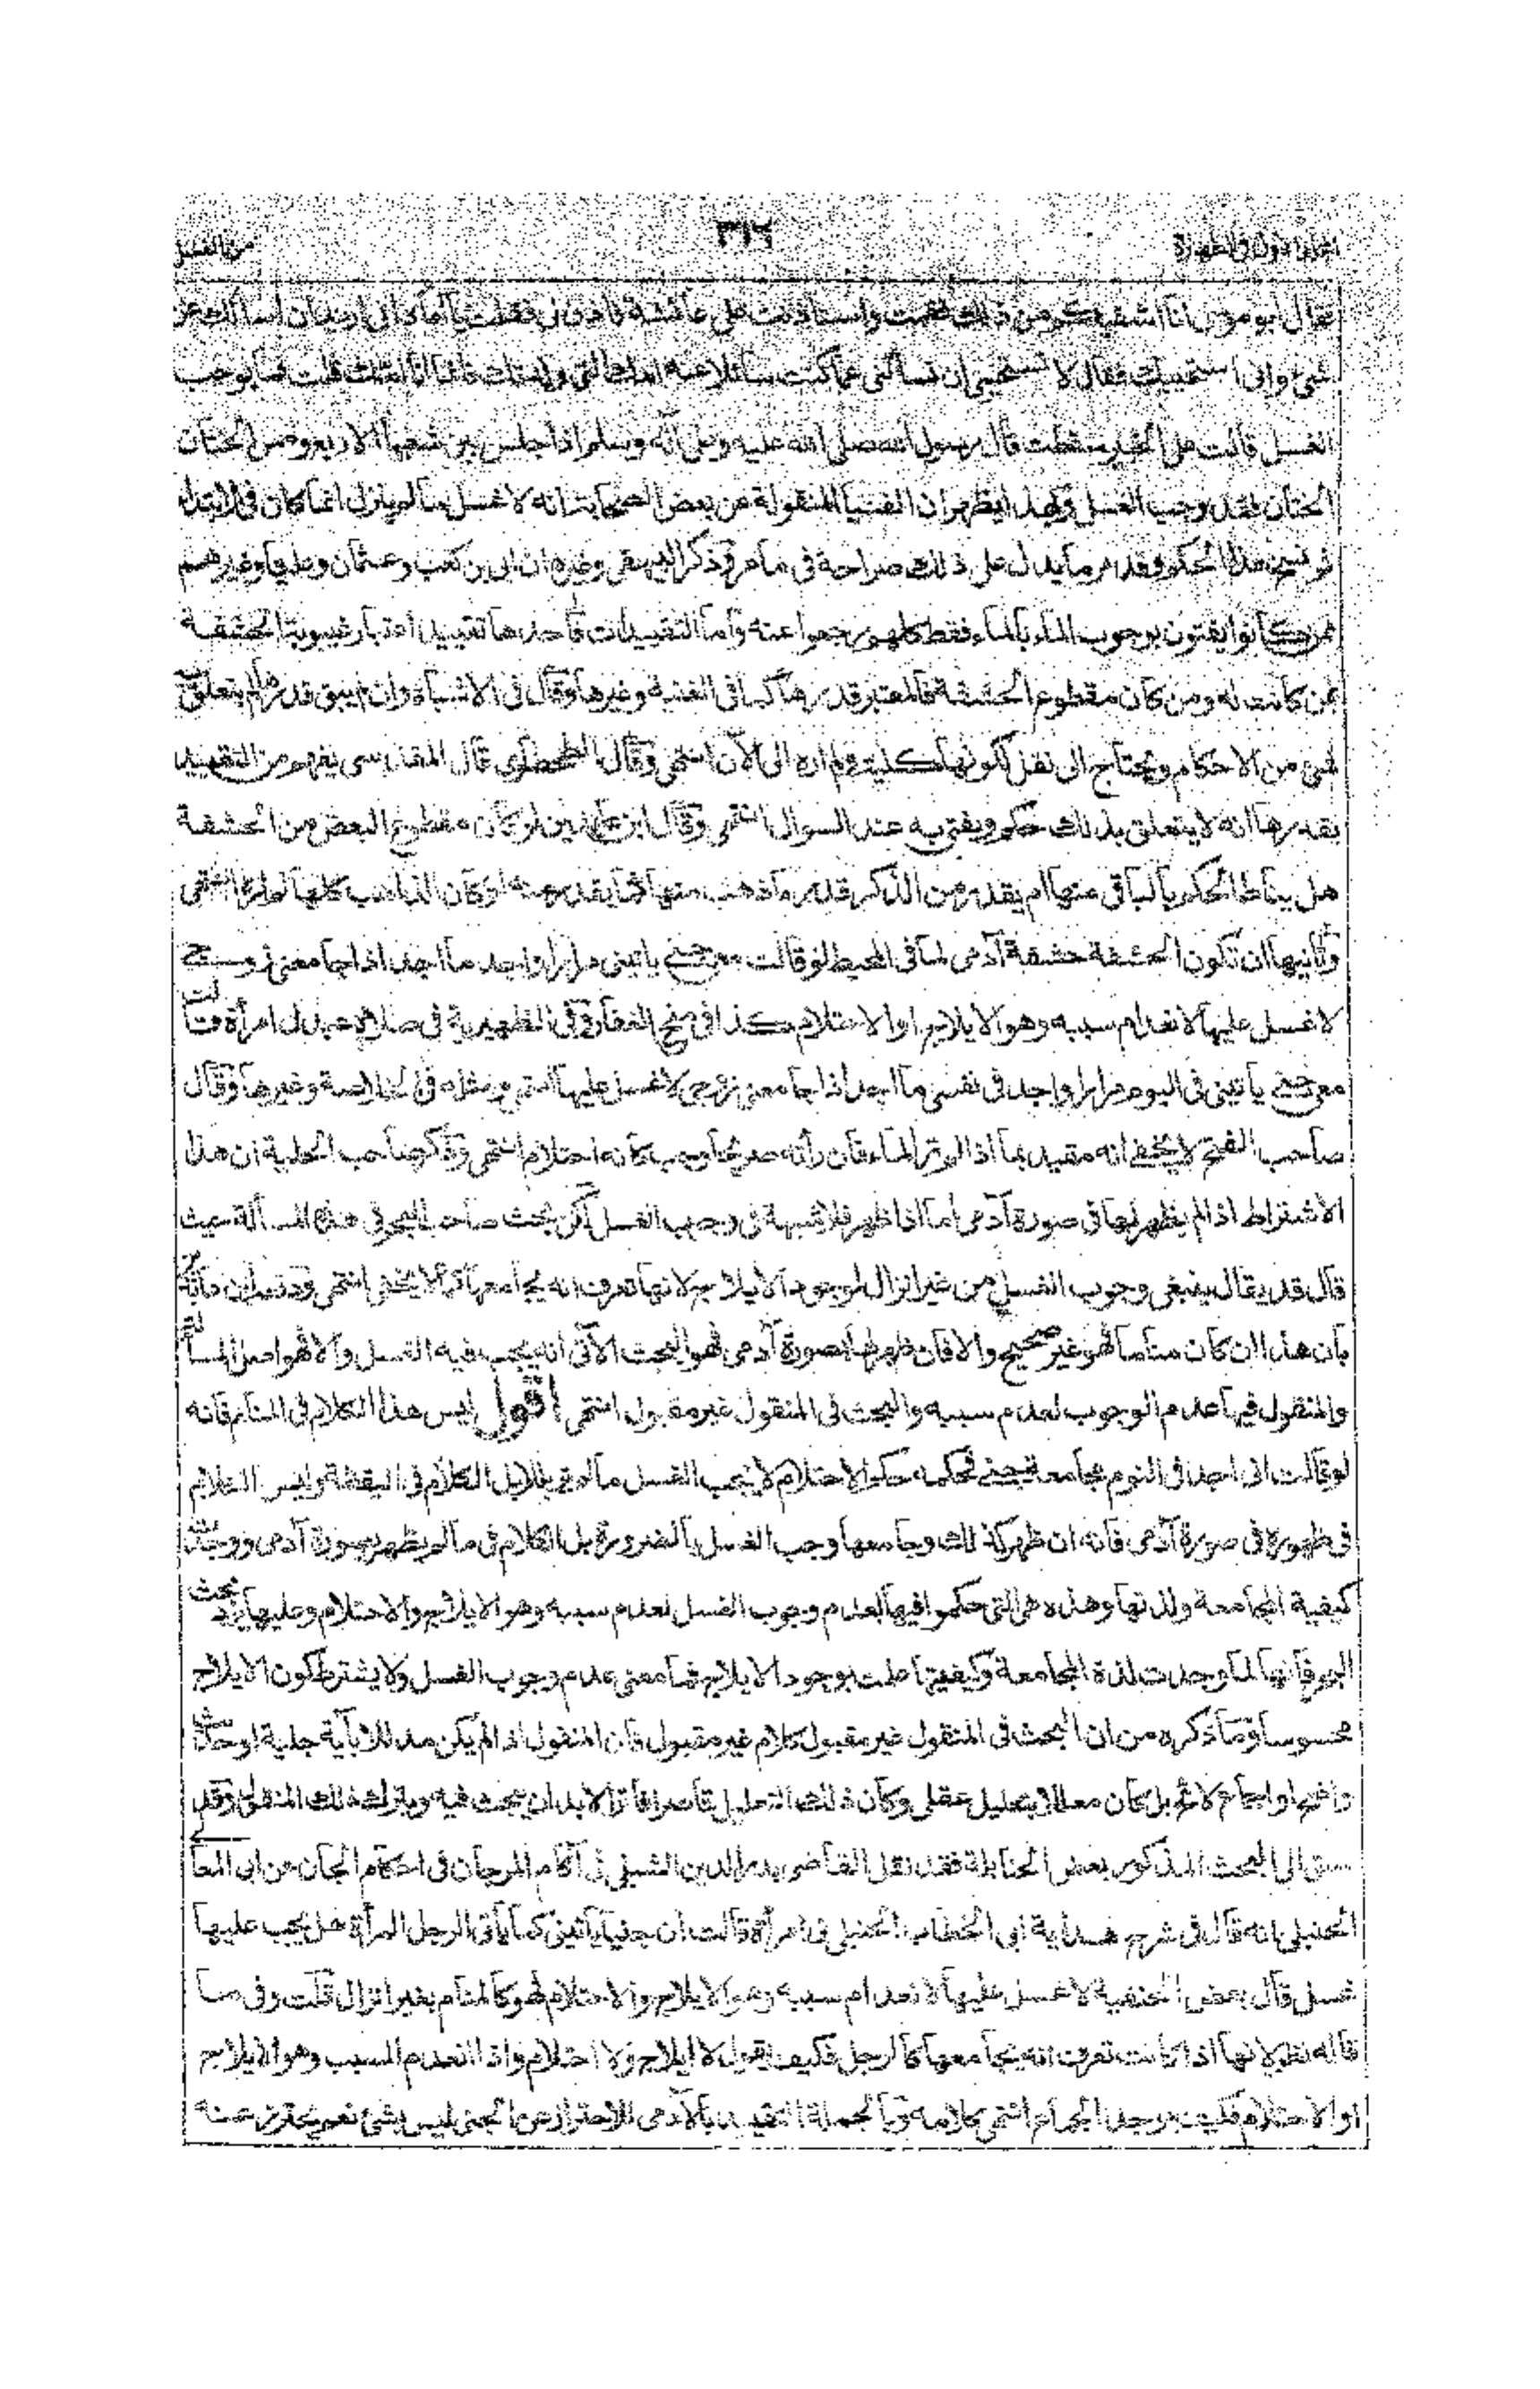 ٣١٢
فقال ابو موسى انا اشفيكم من ذلك فقمت واستأذنت على عائشة فأذن لى فقلت يا أماه انى اريد ان اسألك عن
شئ وانى استحييك فقال لا تستحيي ان تسألنى عما كنت سائلا عنه امك التى ولدتك فانما انا امك قلت فما يوجب
الغسل قالت على الخبير سقطت قال رسول الله صلى الله عليه وعلى آله وسلم اذا جلس بين شعبها الاربع ومس الختان
الختان فقد وجب الغسل وبهذا يظهر ان الفتيا المنقولة عن بعض الصحابة انه لا غسل ما لم ينزل انما كان فى الابتداء
ثم نسخ هذا الحكم وقد مر ما يدل على ذلك صراحة فى ما مر وذكر البيهقى وغيره ان ابى بن كعب وعثمان وعليا وغيرهم
ممن كانوا يفتون بوجوب الماء بالماء فقط كلهم رجعوا عنه وأما التقييدات فأحدها تقييد اعتبار غيبوبة الحشفة
بمن كانت له ومن كان مقطوع الحشفة فالمعتبر قدرها كما فى الغنية وغيرها وقال فى الاشباه وان لم يبق قدرها لم يتعلق به
شئ من الاحكام ويحتاج الى نقل لكونها كلية ولم اره الى الآن انتهى وقال الطحطاوى قال المقدسى يفهم من التقييد
بقدرها انه لا يتعلق بذلك حكم ويفتى به عند السوال انتهى وقال ابن عابدين لو كان مقطوع البعض من الحشفة
هل يناط الحكم بالباقى منها ام يقدر من الذكر قدر ما ذهب منها كما يقدر منه لو كان الذاهب كلها لم اره انتهى
وثانيها ان تكون الحشفة حشفة آدمى لما فى المحيط لو قالت معى جنى ياتينى مرارا واجد ما اجد اذا جامعنى زوجى
لا غسل عليها لانعدام سببه وهو الايلاج او الاحتلام كذا فى منح الغفار وفى الظهيرية فى صلاة عبدل امرأة قالت
معى جنى ياتينى فى اليوم مرارا واجد فى نفسى ما اجد اذا جامعنى زوجى لا غسل عليها انتهى ومثله فى الخلاصة وغيرها وقال
صاحب الفتح لا يخفى انه مقيد بما اذا لم تر الماء فان رأته صريحا وجب كانه احتلام انتهى وذكر صاحب الحلية ان هذا
الاشتراط اذا لم يظهر لها فى صورة آدمى أما اذا ظهر فلا شبهة فى وجوب الغسل لكن بحث صاحب البحر فى هذه المسألة حيث
قال قد يقال ينبغى وجوب الغسل من غير انزال لوجود الايلاج لانها تعرف انه يجامعها كما لا يخفى انتهى ورد
بان هذا ان كان مناما فهو غير صحيح والا فان ظهر لها بصورة آدمى فهو البحث الآتى انه يجب فيه الغسل والا فهو اصل المسألة
والمنقول فيها عدم الوجوب لعدم سببه والبحث فى المنقول غير مقبول انتهى اقول ليس هذا الكلام فى المنام فانه
لو قالت انى اجد فى النوم مجامعة جنى فحكمه حكم الاحتلام لا يجب الغسل ما لم تر بللا بل الكلام فى اليقظة وليس الكلام
فى ظهوره فى صورة آدمى فانه ان ظهر كذلك وجامعها وجب الغسل بالضرورة بل الكلام فى ما لم يظهر بصورة آدمى ووجدت
كيفية المجامعة ولذتها وهذه هى التى حكموا فيها بعدم وجوب الغسل لعدم سببه وهو الايلاج والاحتلام وعليها يرد بحث
البحر فانها لما وجدت لذة المجامعة وكيفيتها علمت بوجود الايلاج فما معنى عدم وجوب الغسل ولا يشترط كون الايلاج
محسوسا وما ذكره من ان البحث فى المنقول غير مقبول كلام غير مقبول فان المنقول اذا لم يكن مدللا بآية جلية او حديث
واضح او اجماع لائح بل كان معللا بتعليل عقلى وكان ذلك التعليل قاصرا فاترا لابد ان يبحث فيه ويترك ذلك المنقول وقد
سبق الى البحث المذكور بعض الحنابلة فقد نقل القاضى بدر الدين الشبلى فى آكام المرجان فى احكام الجان عن ابى المعالى
الحنبلى انه قال فى شرح هداية ابى الخطاب الحنبلى فى امرأة قالت ان جنيا ياتينى كما ياتى الرجل المرأة هل يجب عليها
غسل قال بعض الحنفية لا غسل عليها لانعدام سببه وهو الايلاج والاحتلام فهو كالمنام بغير انزال قلت وفى ما
قاله نظر لانها اذا كانت تعرف انه يجامعها كالرجل فكيف يقول لا ايلاج ولا احتلام واذا انعدم السبب وهو الايلاج
او الاحتلام فكيف يوجد الجماع انتهى كلامه وبالجملة التقييد بالآدمى للاحتراز عن الجنى ليس بشئ نعم يحترز عنه